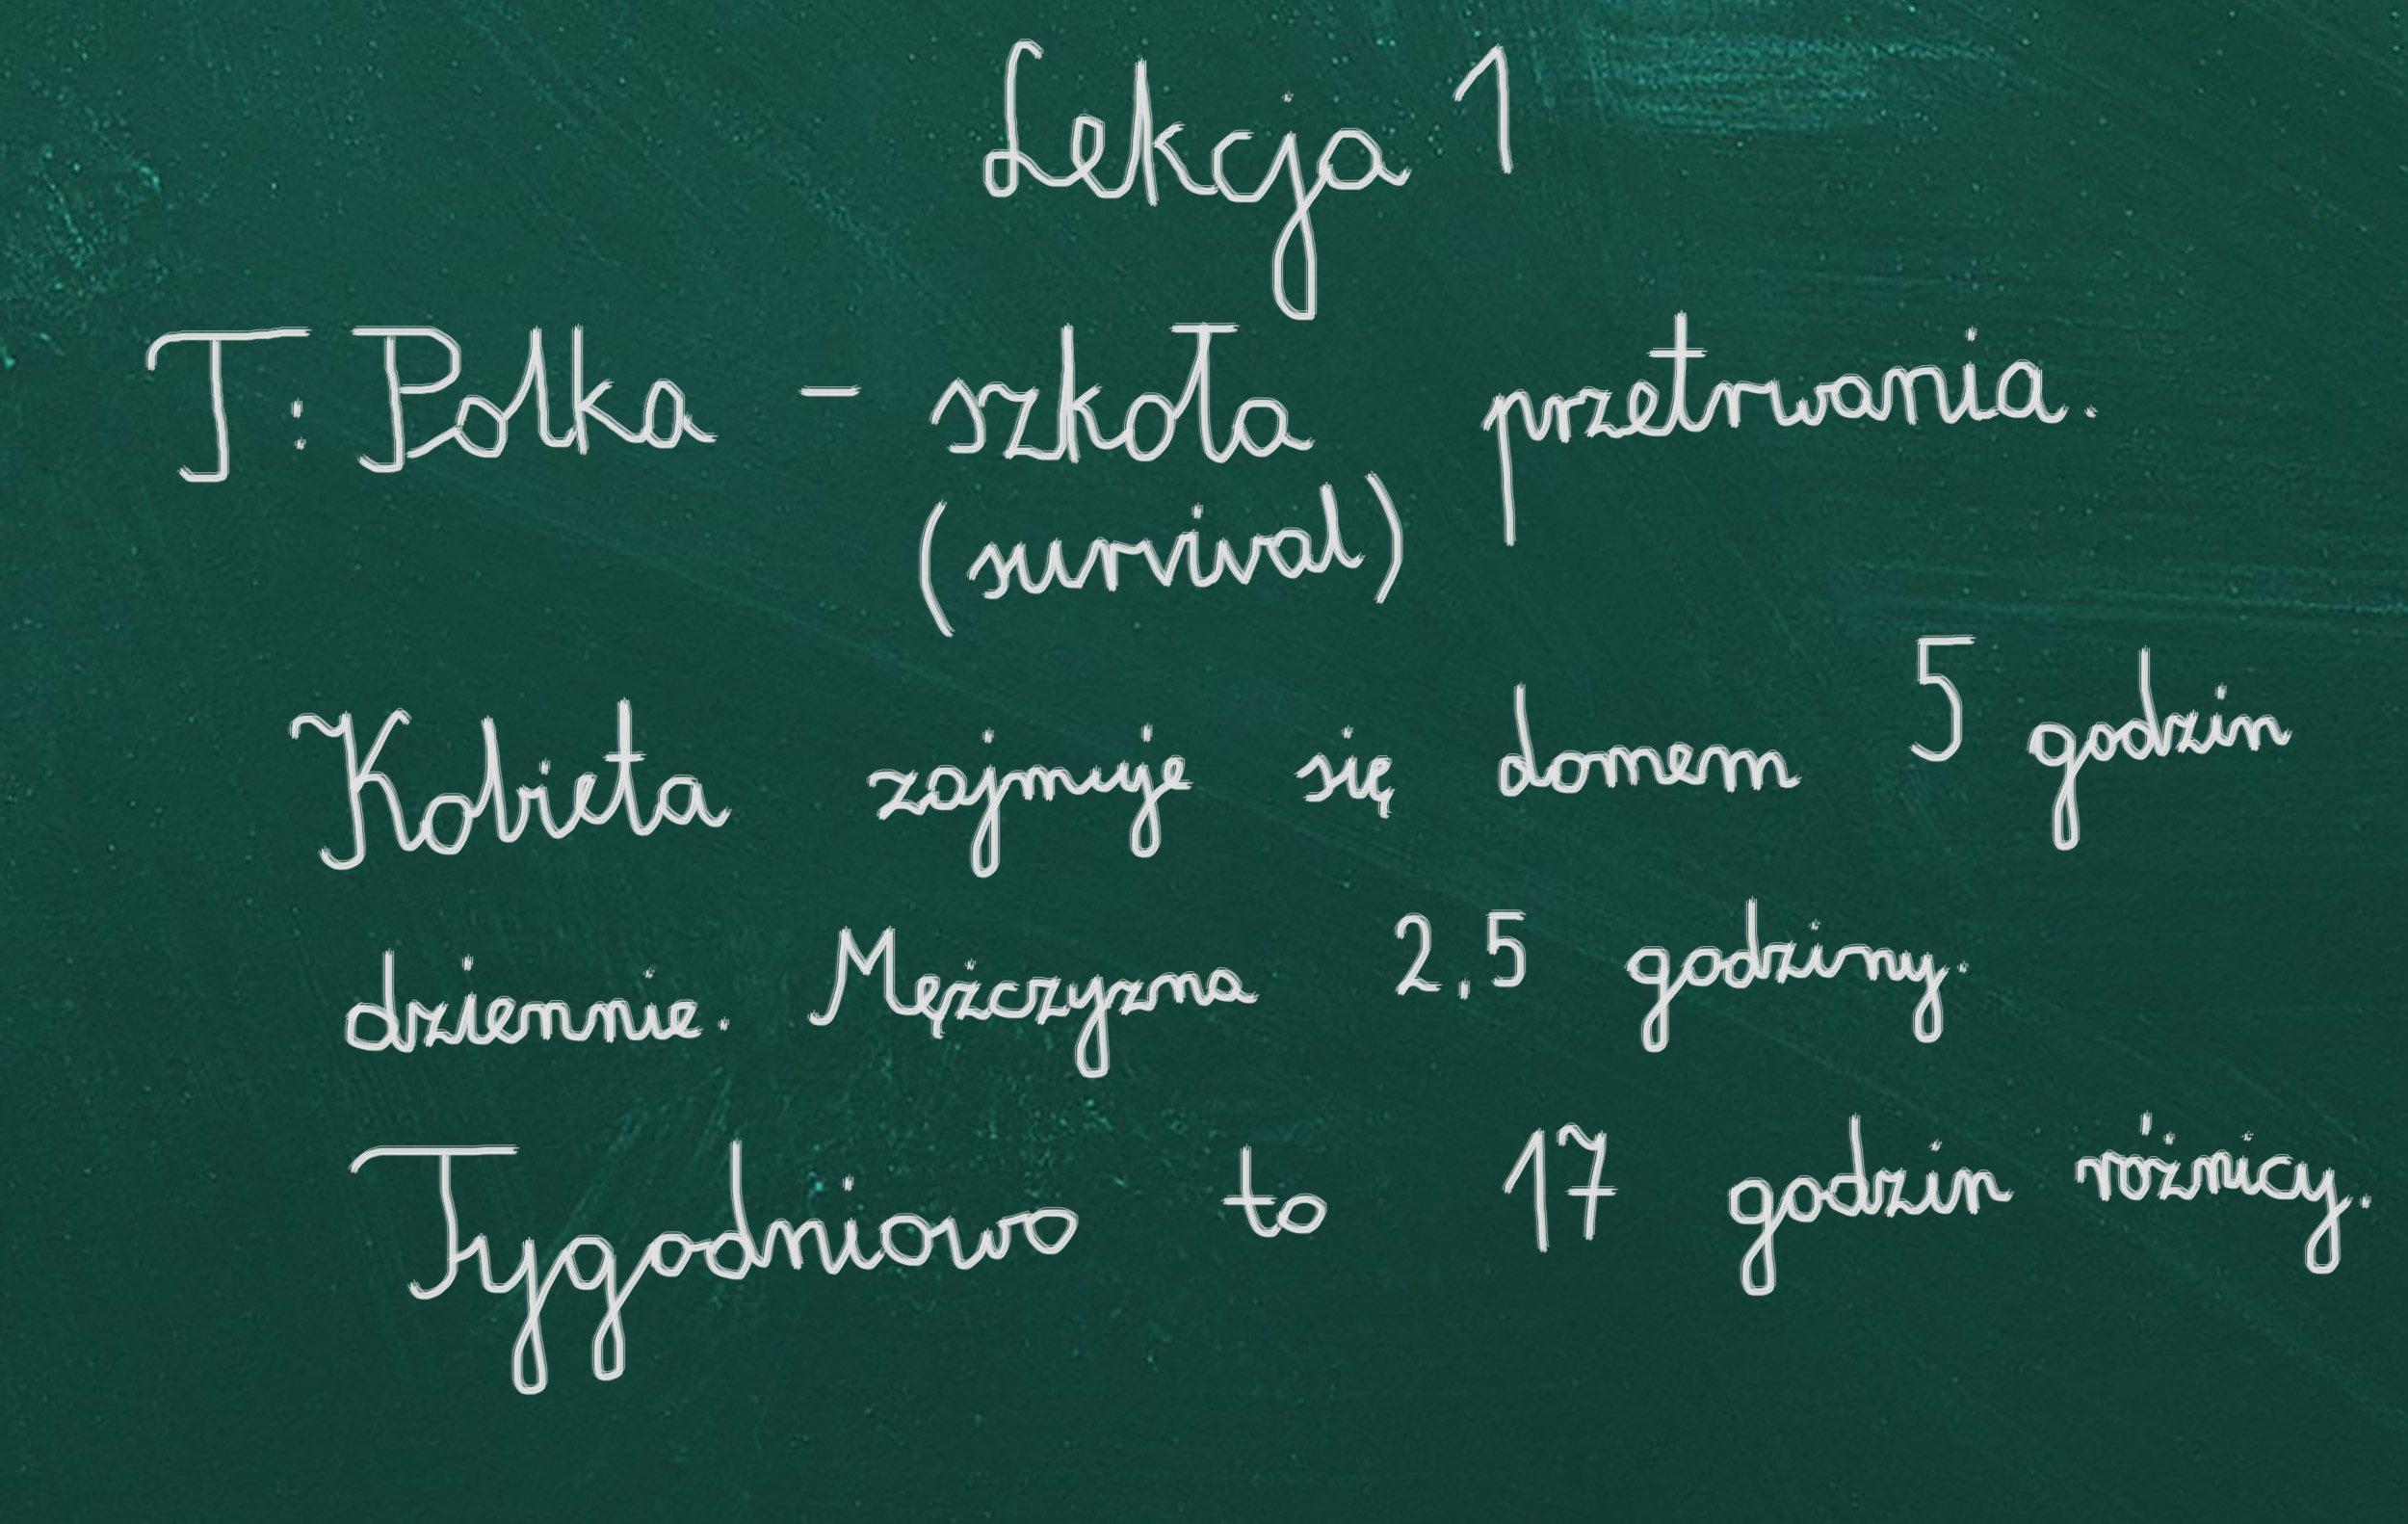 Lekcja 1
T: Polka - szkoła przetrwania.
(survival)
Kobieta zajmuje się domem 5 godzin
dziennie. Mężczyzna 2,5 godziny.
Tygodniowo to 17 godzin różnicy.